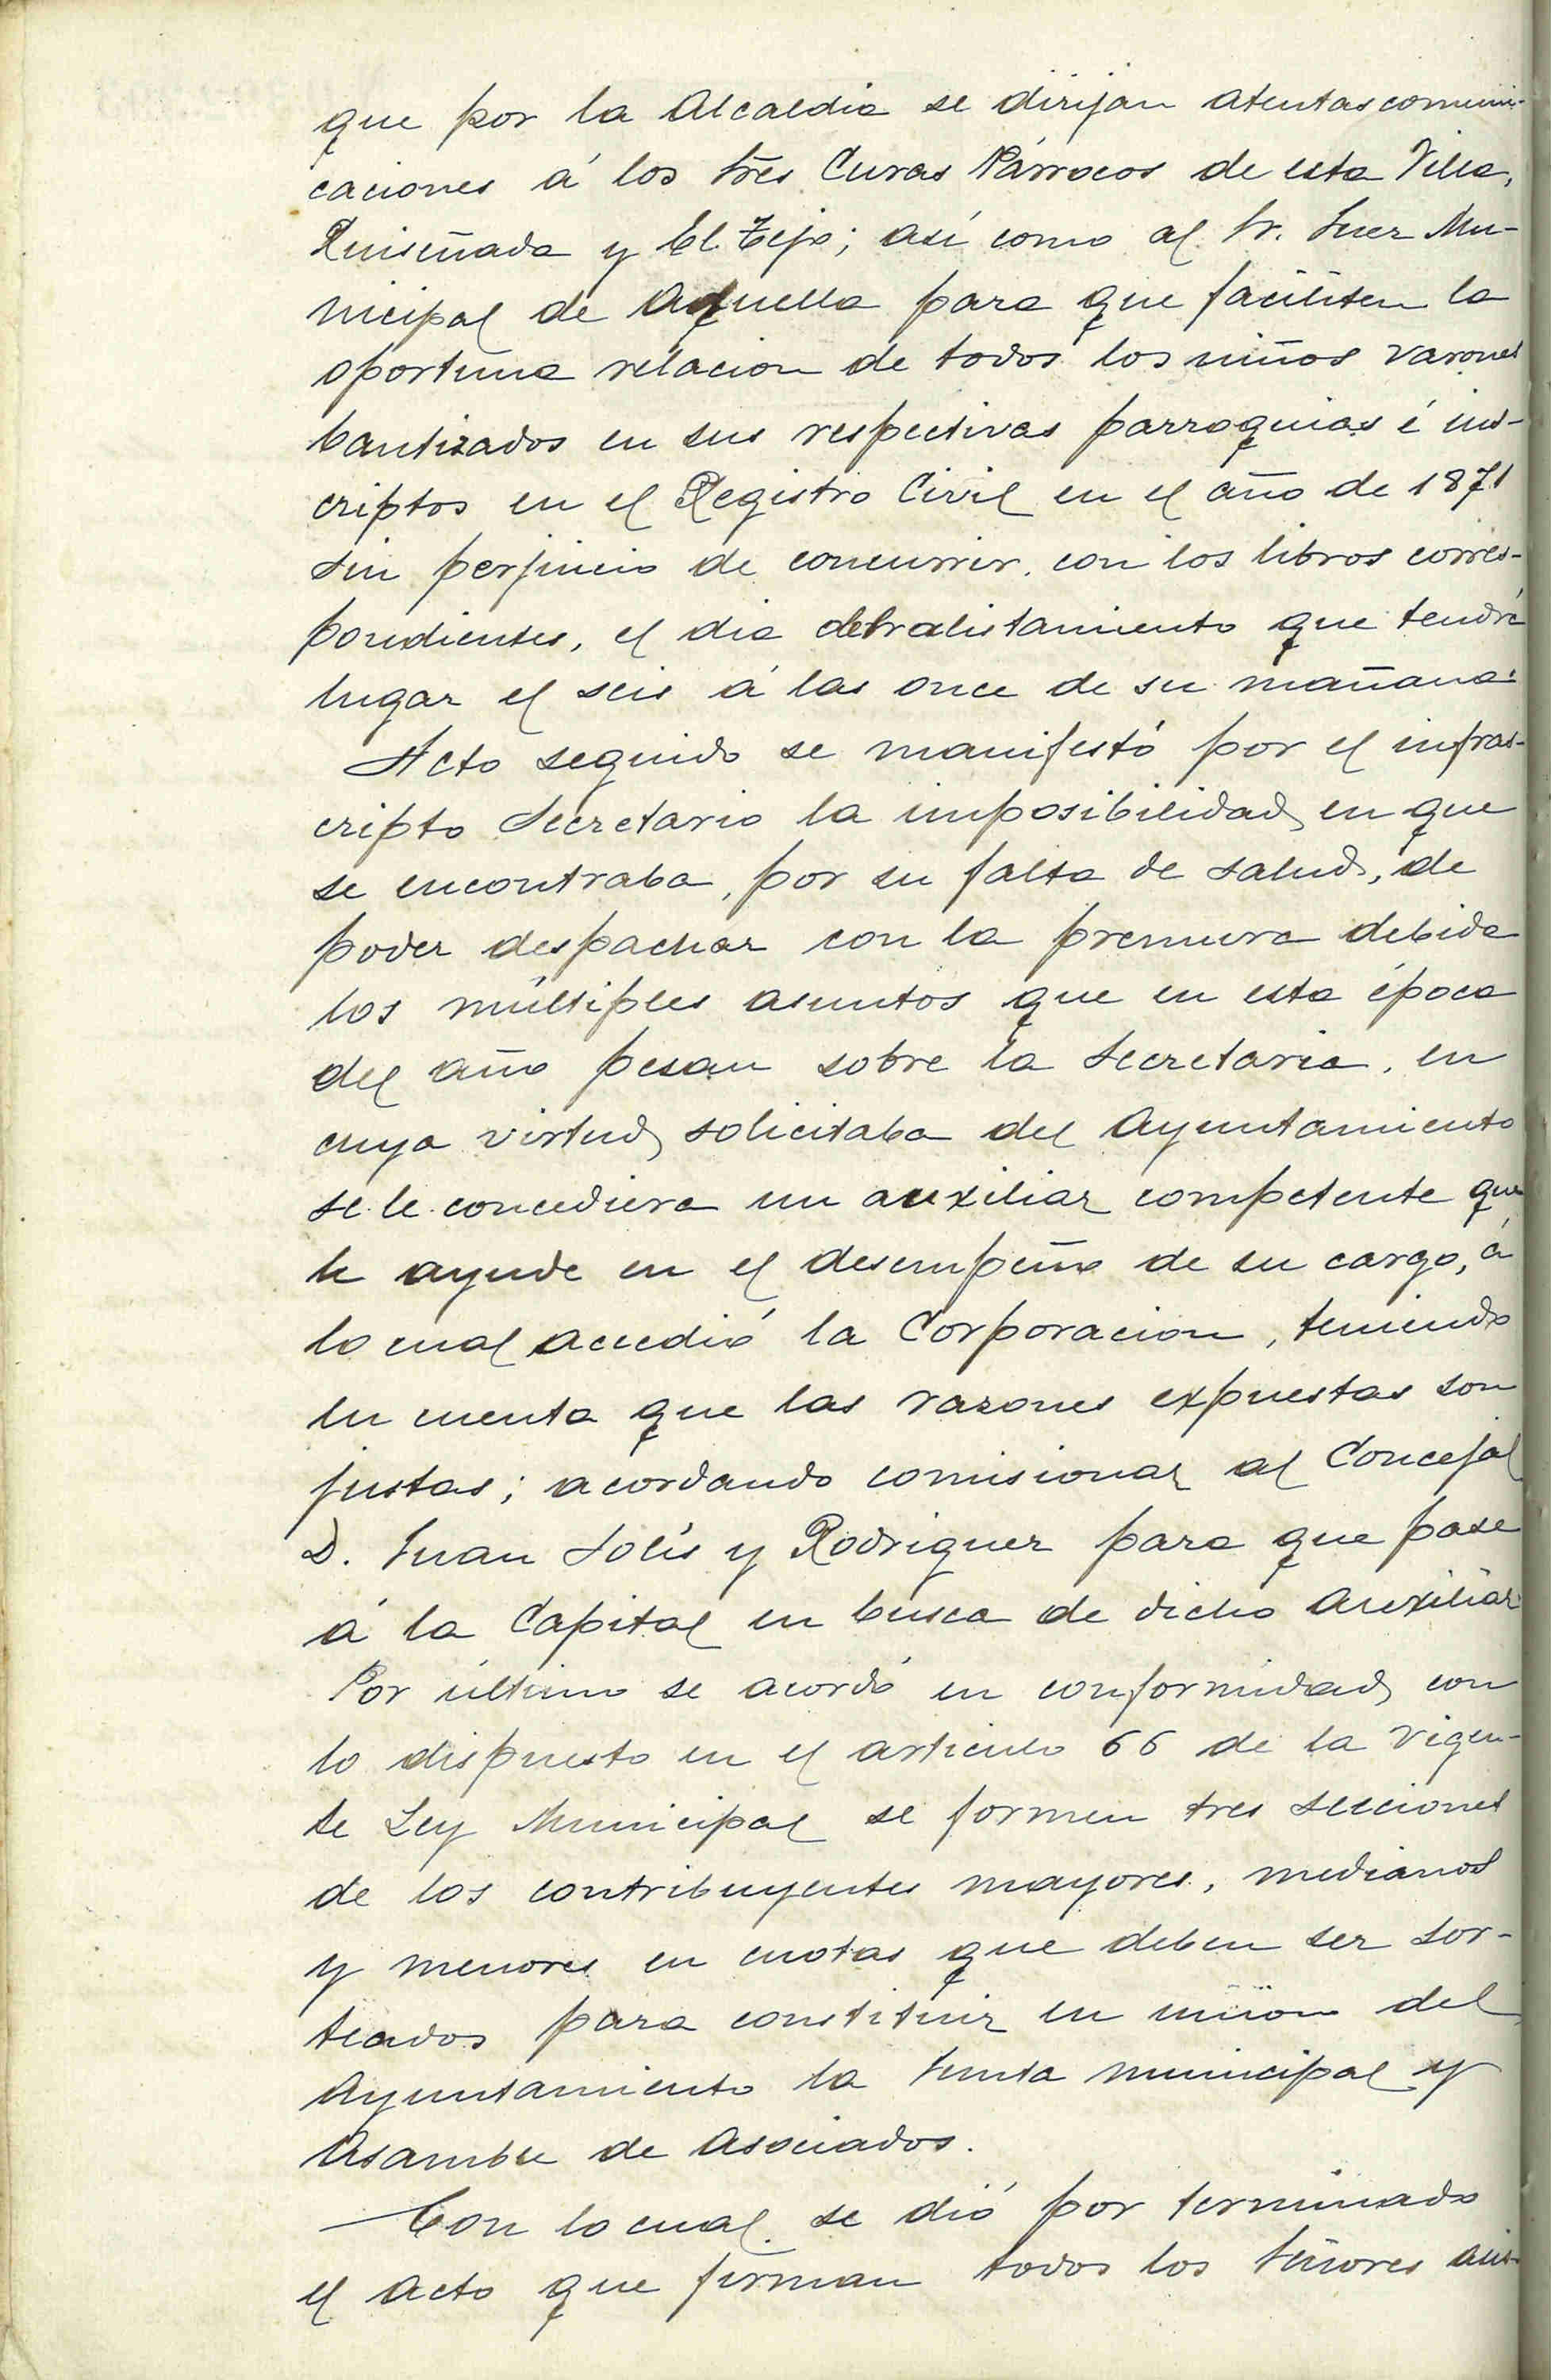 que por la Alcaldia se dirijan atentas comuni-
caciones á los tres Curas Párrocos de esta Villa,
Ruiseñada y El Tejo; así como al Sr. Juez Mu-
nicipal de aquella para que faciliten la
oportuna relacion de todos los niños varones
bautizados en sus respectivas parroquias é ins-
criptos en el Registro Civil en el año de 1871
sin perjuicio de concurrir, con los libros corres-
pondientes, el dia del alistamiento que tendrá
lugar el seis á las once de su mañana.
Acto seguido se manifestó por el infras-
cripto Secretario la imposibilidad en que
se encontraba, por su falta de salud, de
poder despachar con la premura debida
los múltiples asuntos que en esta época
del año pesan sobre la Secretaria, en
cuya virtud solicitaba del Ayuntamiento
se le concediera un auxiliar competente que
le ayude en el desempeño de su cargo, á
lo cual accedió la Corporacion, teniendo
en cuenta que las razones expuestas son
justas; acordando comisionar al Concejal
D. Juan Solís y Rodriguez para que pase
á la Capital en busca de dicho Auxiliar.
Por último se acordó en conformidad con
lo dispuesto en el articulo 66 de la vigen-
te Ley Municipal se formen tres secciones
de los contribuyentes mayores, medianos
y menores en cuotas que deben ser sor-
teados para constituir en union del
Ayuntamiento la Junta municipal y
Asamblea de Asociados.
Con lo cual se dió por terminado
el acto que firman todos los Señores asis-